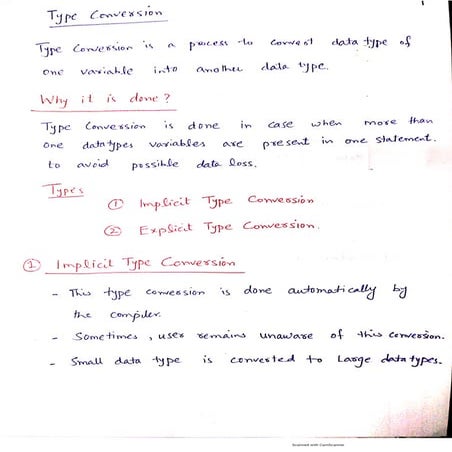 1
Type Conversion
Type Conversion is a process to convert data type of
one variable into another data type.
Why it is done?
Type Conversion is done in case when more than
one datatypes variables are present in one statement.
to avoid possible data loss.
Types
① Implicit Type Conversion
② Explicit Type Conversion.
① Implicit Type Conversion
- This type conversion is done automatically by
the compiler.
- Sometimes, user remains unaware of this conversion.
- Small data type is converted to Large datatypes.
Scanned with CamScanner